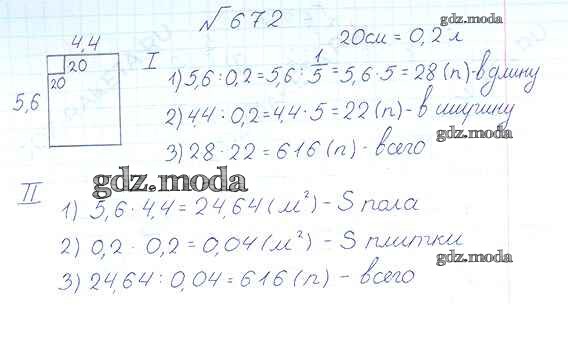 √672
gdz.moda
20см = 0,2 м
4,4
20
20
5,6
I
1) 5,6 : 0,2 = 5,6 : 1/5 = 5,6 · 5 = 28 (п) - в длину
2) 4,4 : 0,2 = 4,4 · 5 = 22 (п) - в ширину
3) 28 · 22 = 616 (п) - всего
gdz.moda
gdz.moda
gdz.moda
II
1) 5,6 · 4,4 = 24,64 (м²) - S пола
2) 0,2 · 0,2 = 0,04 (м²) - S плитки
gdz.moda
3) 24,64 : 0,04 = 616 (п) - всего